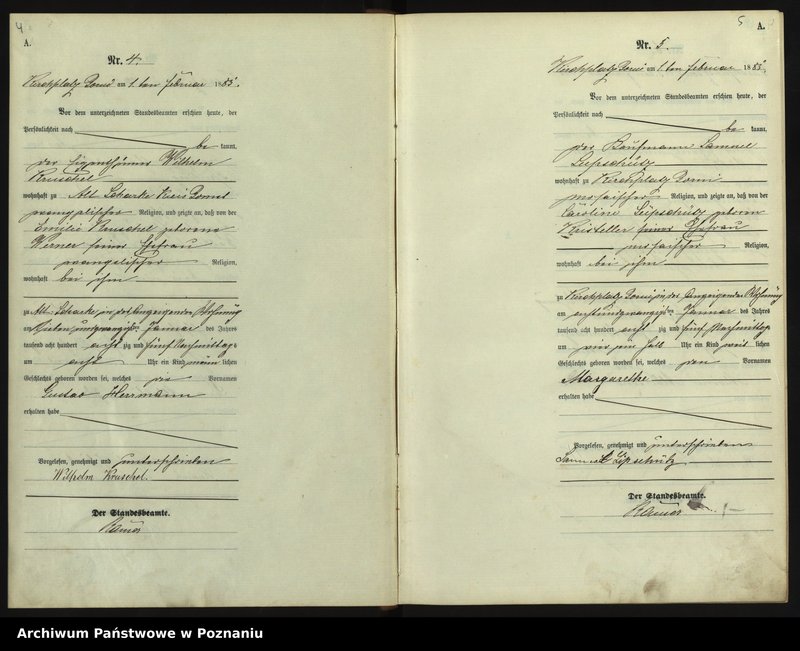 4
A.
Nr. 4.
Kirchplatz Domb am 1. ten Februar 1885.
Vor dem unterzeichneten Standesbeamten erschien heute, der
Persönlichkeit nach
be kannt,
der Eigenthümer Wilhelm
Kruschel
wohnhaft zu Alt Scharke Kreis Bomst
evangelischer Religion, und zeigte an, daß von der
Emilie Kruschel geborene
Werner seiner Ehefrau
evangelischer Religion,
wohnhaft bei ihm
zu Alt-Scharke, in der Wohnung
am sieben und zwanzigsten Januar des Jahres
tausend acht hundert acht zig und fünf Nachmittags
um acht Uhr ein Kind männ lichen
Geschlechts geboren worden sei, welches die Vornamen
Gustav Herrmann
erhalten habe
Vorgelesen, genehmigt und unterschrieben
Wilhelm Kruschel.
Der Standesbeamte.
5
A.
Nr. 5.
Kirchplatz am 1. ten Februar 1885.
Vor dem unterzeichneten Standesbeamten erschien heute, der
Persönlichkeit nach
be kannt,
der Kaufmann Samuel
Lipschütz
wohnhaft zu Kirchplatz
mosaischer Religion, und zeigte an, daß von der
Caroline Lipschütz geborenen
Kristeller seiner Ehefrau
mosaischer Religion,
wohnhaft bei ihm
zu Kirchplatz in der Wohnung
am ein und zwanzigsten Januar des Jahres
tausend acht hundert acht zig und fünf Nachmittags
um vier ein halb Uhr ein Kind weib lichen
Geschlechts geboren worden sei, welches den Vornamen
Margarethe
erhalten habe
Vorgelesen, genehmigt und unterschrieben
Samuel Lipschütz.
Der Standesbeamte.
Archiwum Państwowe w Poznaniu